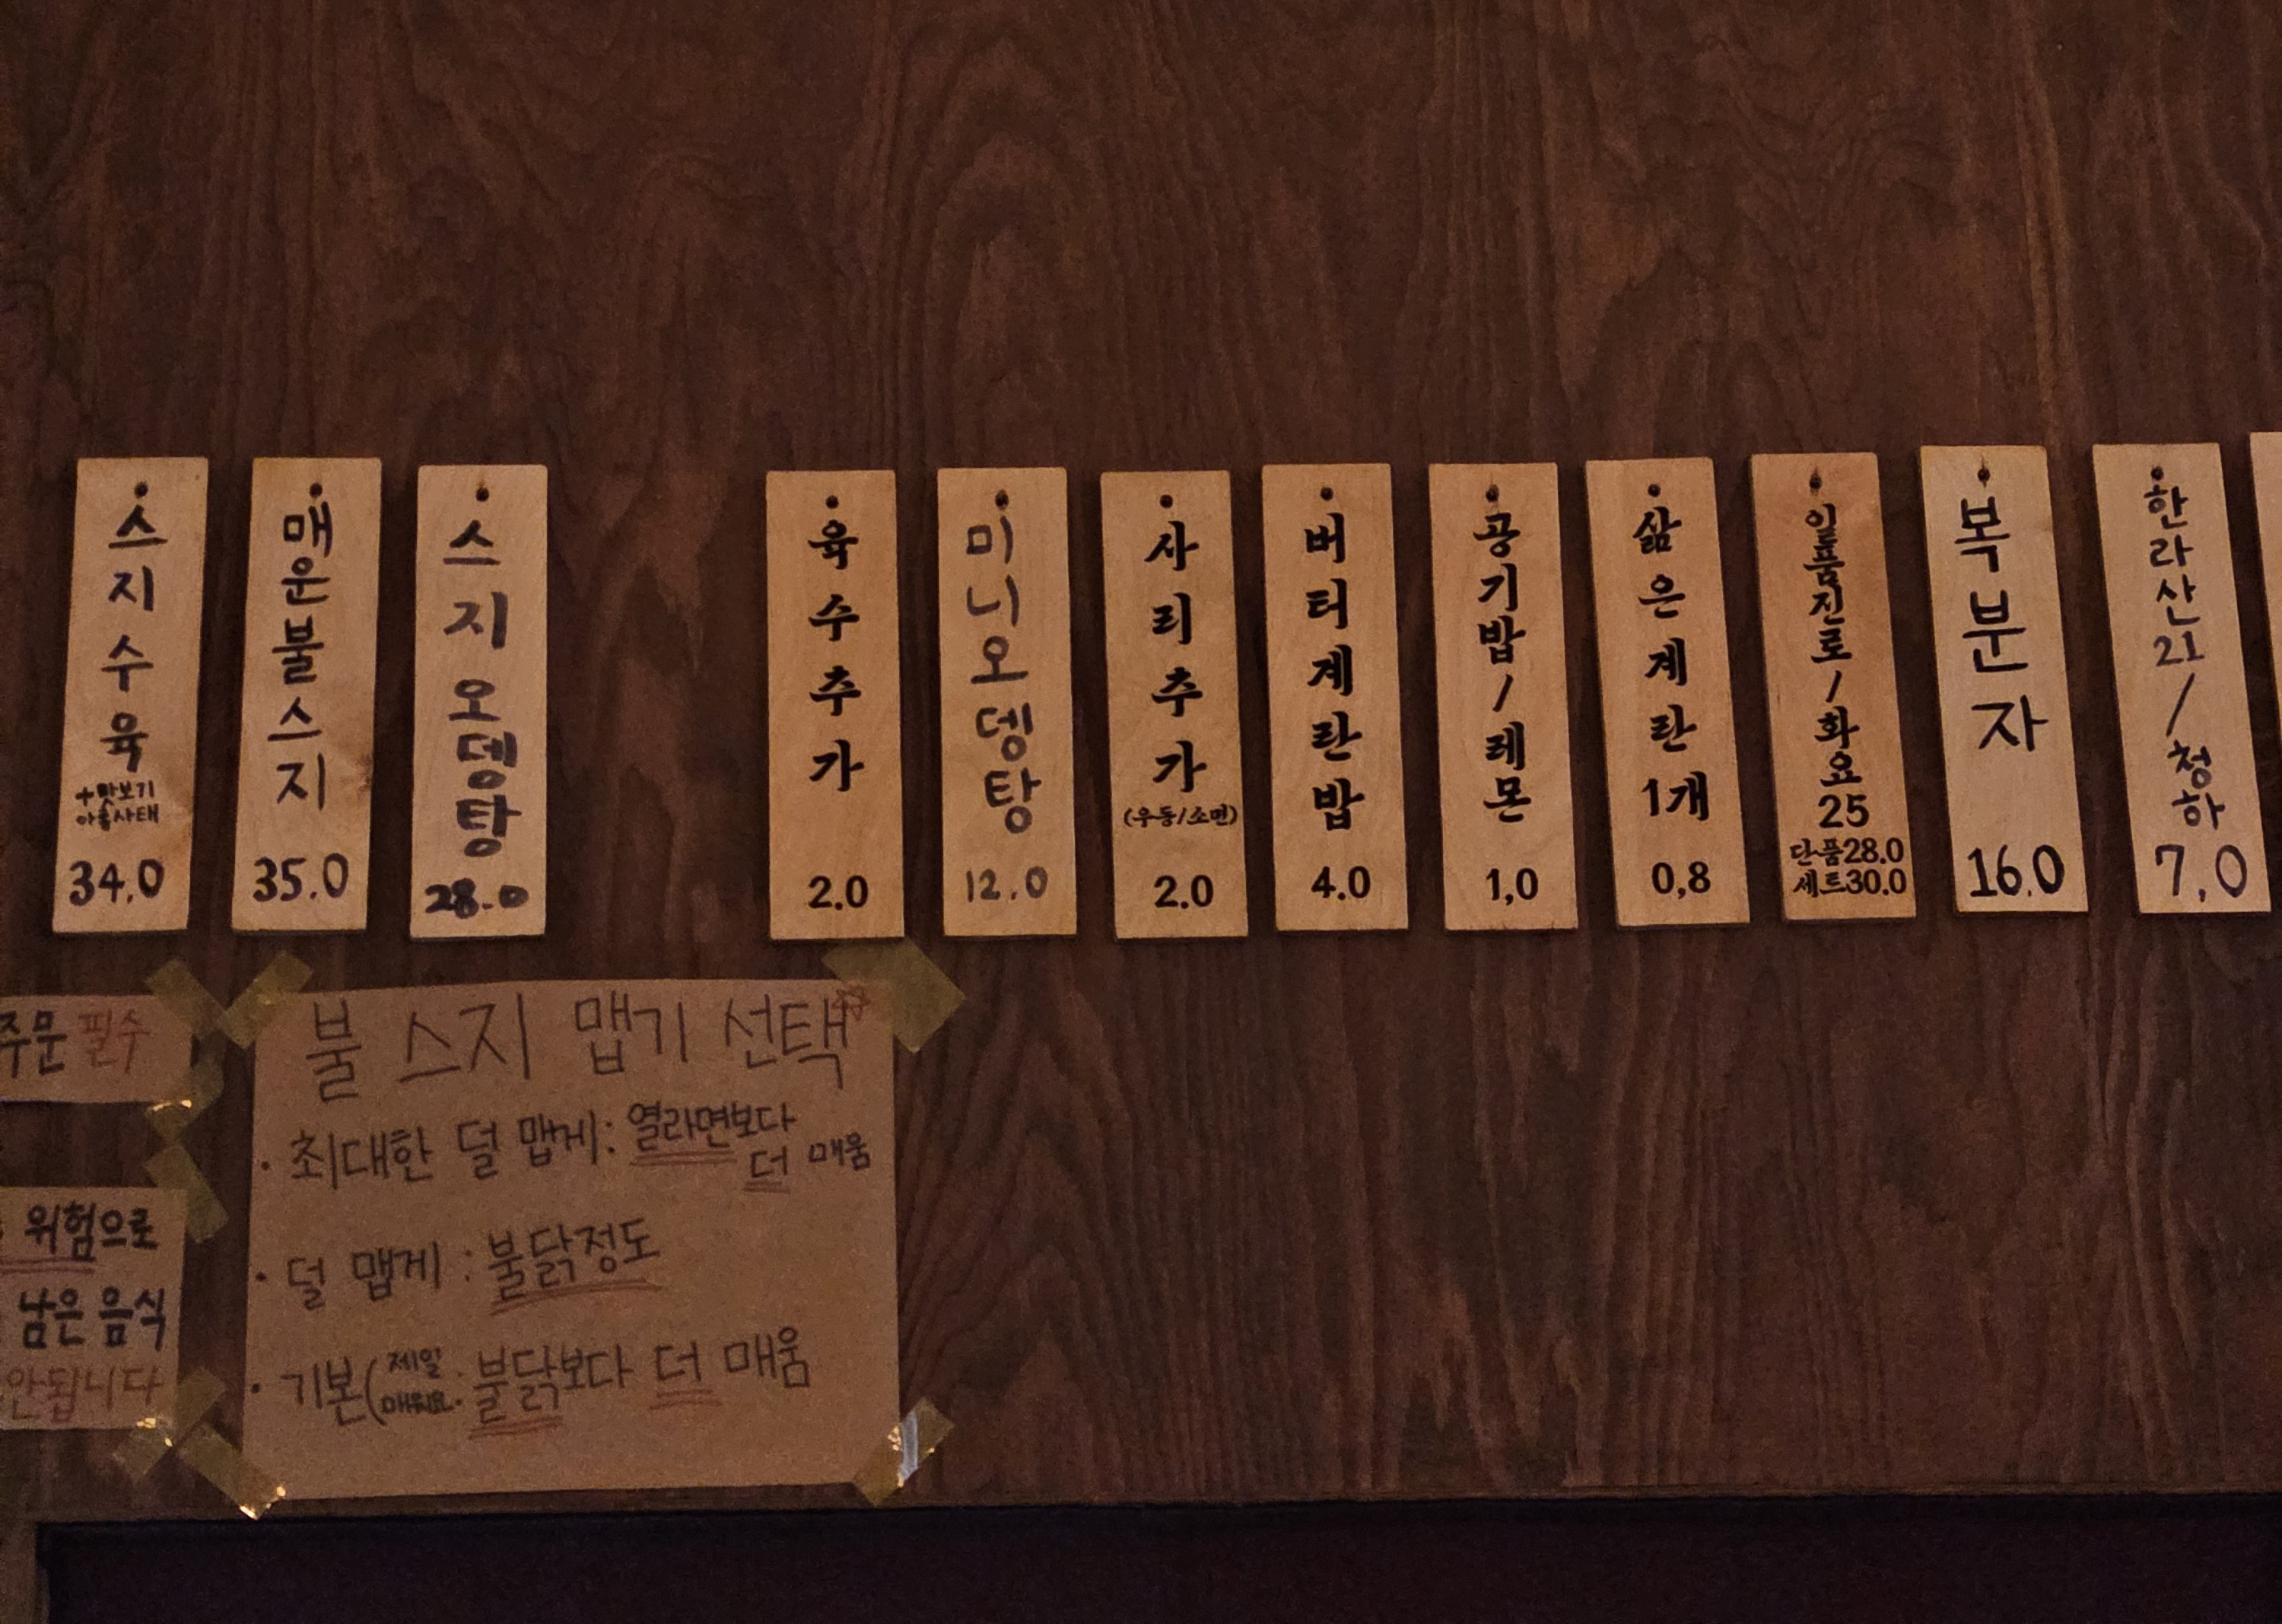 스지수육
+맛보기
아롱사태
34.0
매운불스지
35.0
스지오뎅탕
28.0
육수추가
2.0
미니오뎅탕
12.0
사리추가
(우동/소면)
2.0
버터계란밥
4.0
공기밥/레몬
1,0
삶은계란1개
0,8
일품진로/화요25
단품28.0
세트30.0
복분자
16.0
한라산21/청하
7,0
주문 필수
위험으로
남은 음식
안됩니다
불 스지 맵기 선택
· 최대한 덜 맵게: 열라면보다
더 매움
· 덜 맵게 : 불닭정도
· 기본(제일 매워요· 불닭보다 더 매움